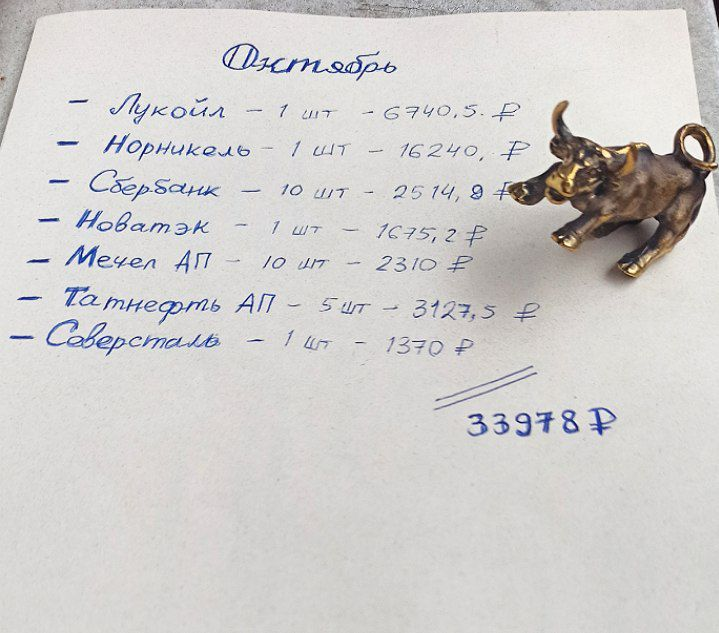 Октябрь
- Лукойл - 1 шт - 6740,5. ₽
- Норникель - 1 шт - 16240, ₽
- Сбербанк - 10 шт - 2514,9 ₽
- Новатэк - 1 шт - 1675,2 ₽
- Мечел АП - 10 шт - 2310 ₽
- Татнефть АП - 5 шт - 3127,5 ₽
- Северсталь - 1 шт - 1370 ₽
33978 ₽